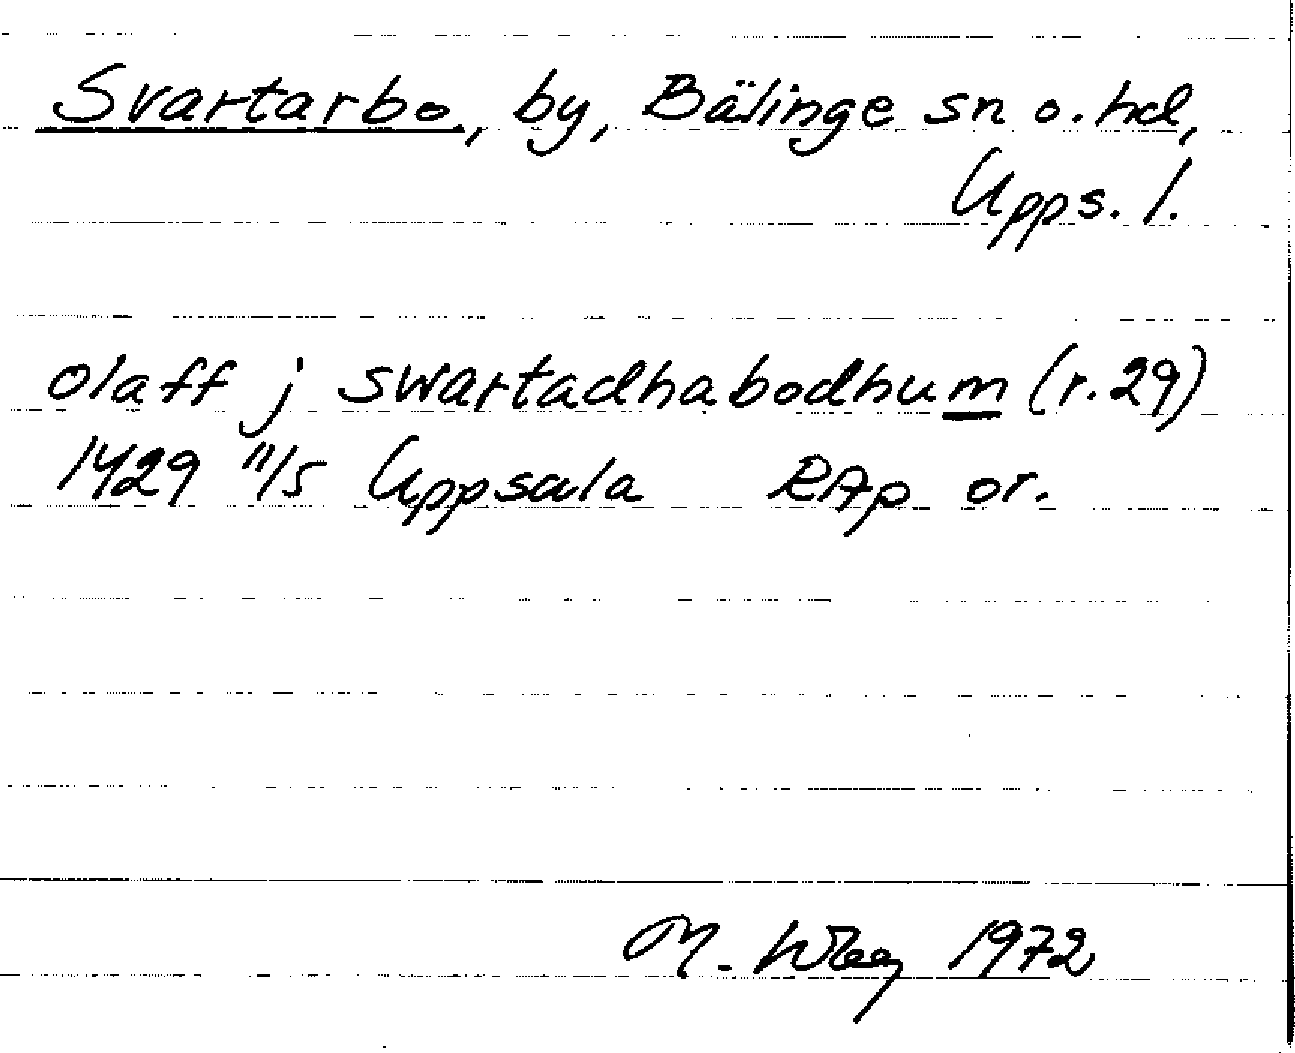 Svartarbo, by, Bälinge sn o. hd,
Upps. l.
olaff j swartadhabodhum (r. 29)
1429 11/5 Uppsala RAp or.
M. 1972